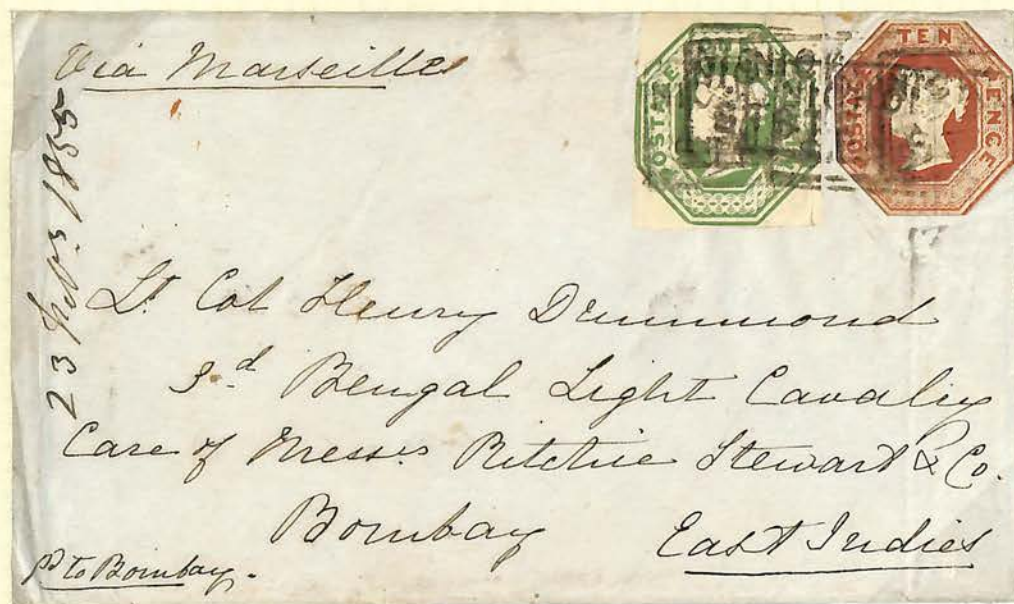 Via Marseilles
POSTAGE
TEN PENCE
POSTAGE
23 Feby 1855
Lt Col Henry Drummond
3d Bengal Light Cavalry
Care of Messrs Ritchie Stewart & Co.
Bombay East Indies
pd to Bombay.